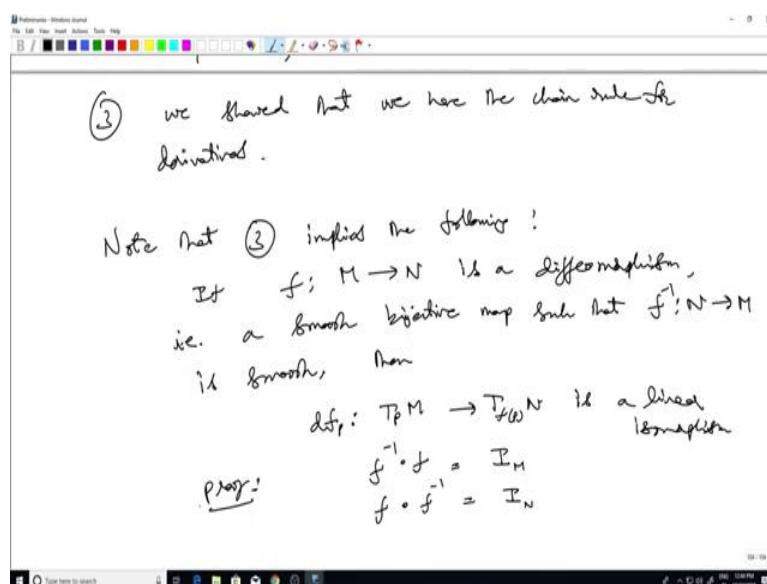 Preliminaries - Windows Journal
File Edit View Insert Actions Tools Help
③ we showed that we have the chain rule for
derivatives.
Note that ③ implies the following:
If f: M → N is a diffeomorphism,
i.e. a smooth bijective map such that f⁻¹: N → M
is smooth, then
df_p: T_pM → T_{f(p)}N is a linear
isomorphism
proof:
f⁻¹∘f = I_M
f∘f⁻¹ = I_N
Type here to search